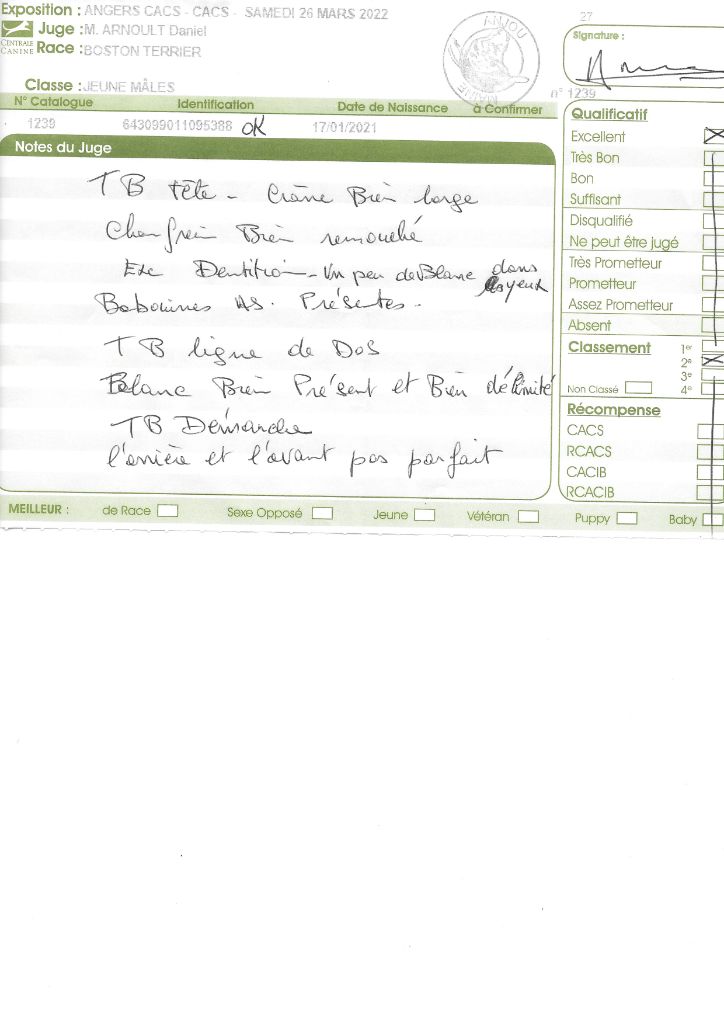 Exposition : ANGERS CACS - CACS - SAMEDI 26 MARS 2022
Juge : M. ARNOULT Daniel
CENTRALE CANINE
Race : BOSTON TERRIER
Classe : JEUNE MÂLES
ANJOU
MAINE
27
Signature :
n° 1239
N° Catalogue Identification Date de Naissance à Confirmer
1239 643099011095388 OK 17/01/2021
Notes du Juge
TB tête - Crâne Bien large
Chanfrein Bien remouché
Exc Dentition - Un peu de Blanc dans
les yeux
Babouines AS. Présentes.
TB ligne de Dos
Blanc Bien Présent et Bien délimité
TB Démarche
l'arrière et l'avant pas parfait
Qualificatif
Excellent
Très Bon
Bon
Suffisant
Disqualifié
Ne peut être jugé
Très Prometteur
Prometteur
Assez Prometteur
Absent
Classement 1er
2e
3e
Non Classé 4e
Récompense
CACS
RCACS
CACIB
RCACIB
MEILLEUR : de Race Sexe Opposé Jeune Vétéran Puppy Baby